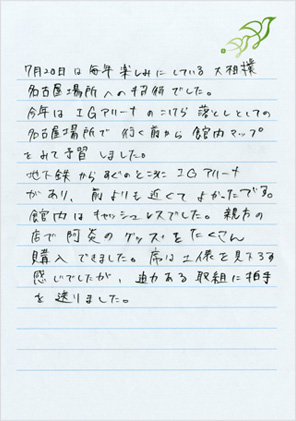 7月20日は毎年楽しみにしている大相撲
名古屋場所への招待でした。
今年はIGアリーナのこけら落としとしての
名古屋場所で行く前から館内マップ
をみて予習しました。
地下鉄からすぐのところにIGアリーナ
があり、前よりも近くてよかったです。
館内はキャッシュレスでした。親方の
店で阿炎のグッズをたくさん
購入できました。席は土俵を見下ろす
感じでしたが、迫力ある取組に拍手
を送りました。